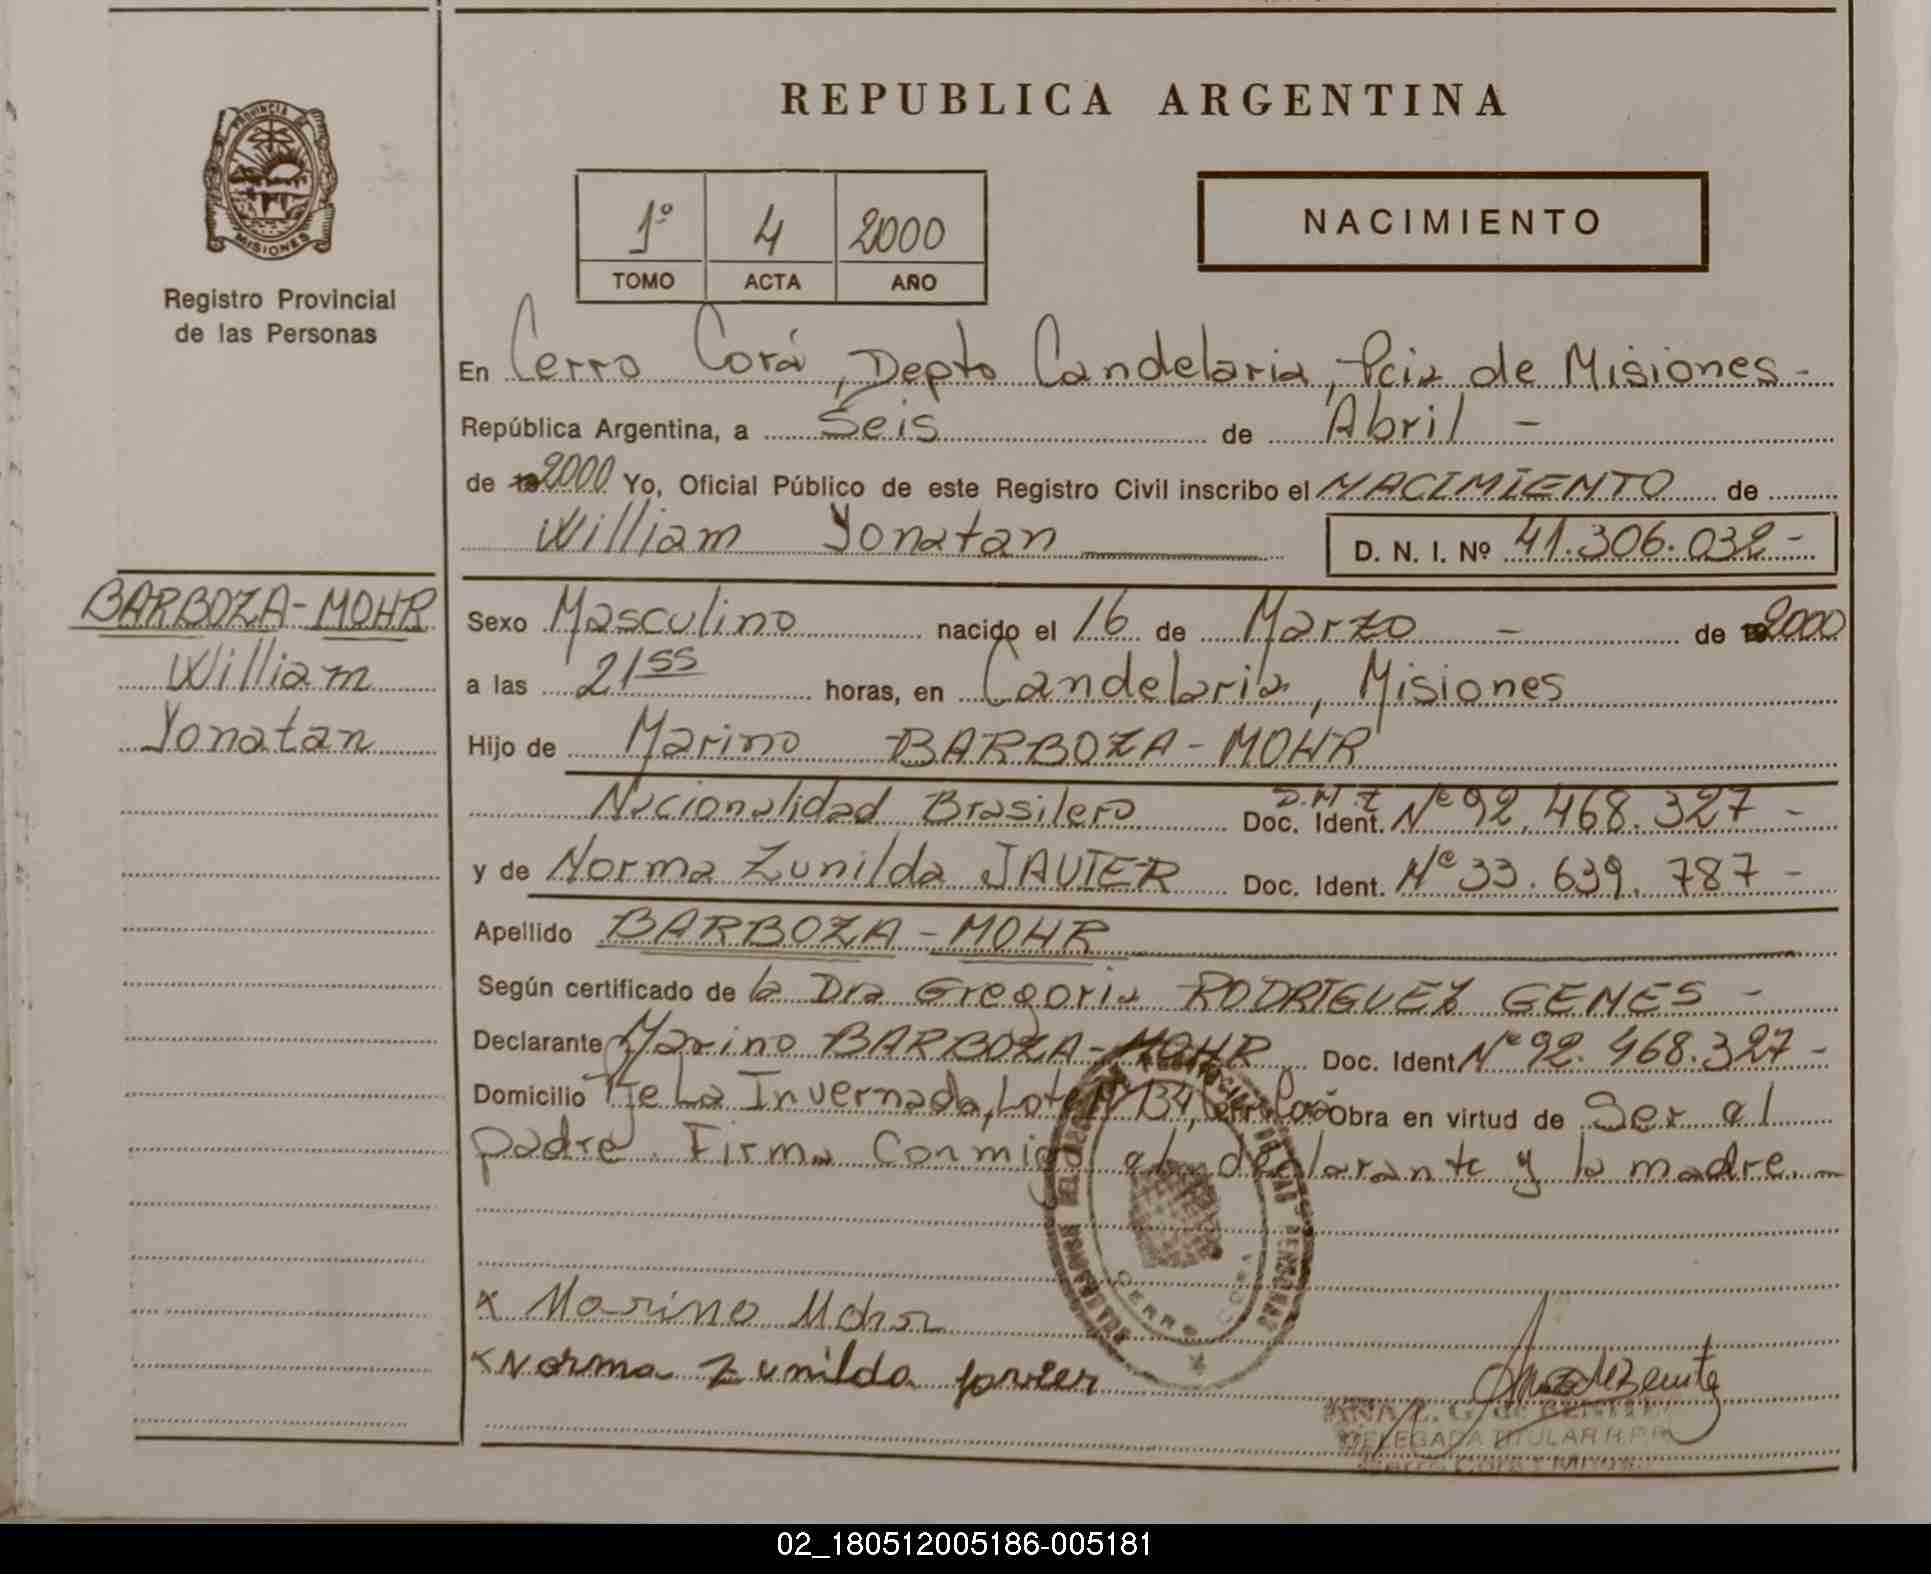 REPUBLICA ARGENTINA
PROVINCIA DE
MISIONES
Registro Provincial
de las Personas
1º 4 2000
TOMO ACTA AÑO
NACIMIENTO
En Cerro Corá, Depto Candelaria, Pcia de Misiones -
República Argentina, a Seis de Abril -
de 2000 Yo, Oficial Público de este Registro Civil inscribo el NACIMIENTO de
William Yonatan
D. N. I. Nº 41.306.032 -
BARBOZA-MOHR
William
Yonatan
Sexo Masculino nacido el 16 de Marzo - de 2000
a las 21 55 horas, en Candelaria, Misiones
Hijo de Marino BARBOZA-MOHR
Nacionalidad Brasilero D.N.I. Doc. Ident. Nº 92.468.327 -
y de Norma Zunilda JAVIER Doc. Ident. Nº 33.639.787 -
Apellido BARBOZA-MOHR
Según certificado de la Dra Gregoria RODRIGUEZ GENES -
Declarante Marino BARBOZA-MOHR Doc. Ident. Nº 92.468.327 -
Domicilio Pje La Invernada, Lote Nº 134, Obra en virtud de Ser el
padre. Firma Conmigo el declarante y la madre. -
CERRO
x Marino Mohr
x Norma Zunilda javier
ANA Z. G. de BENITEZ
DELEGADA TITULAR R.P.P.
02_180512005186-005181